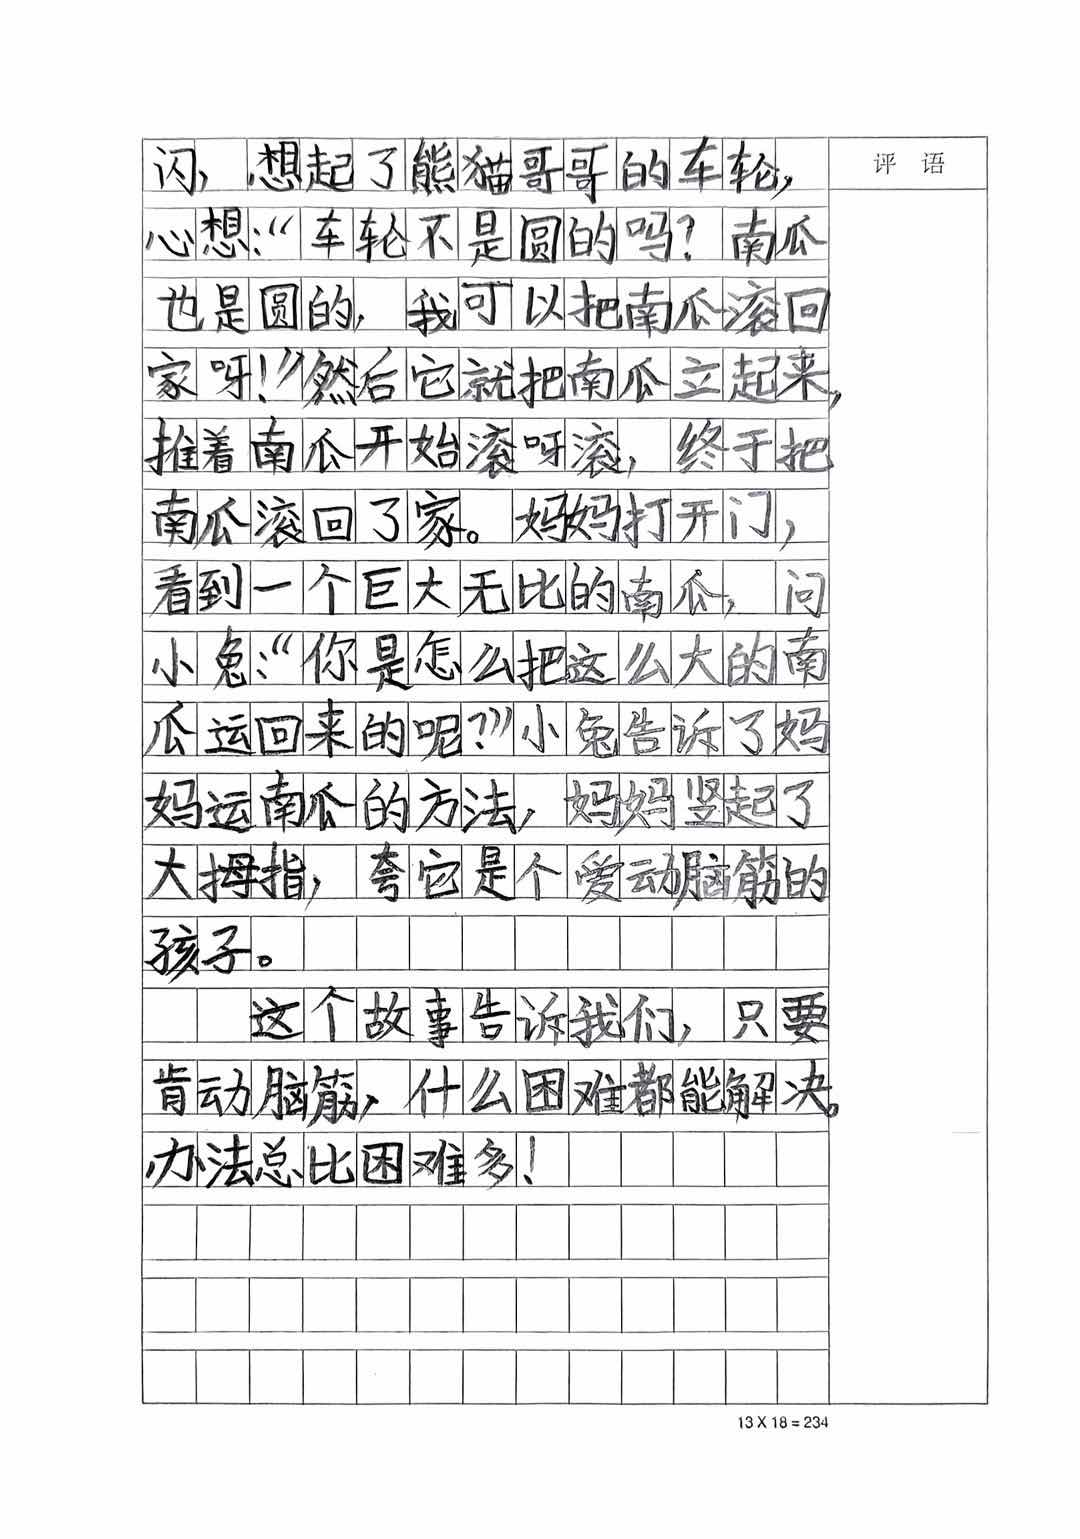 评语
闪，想起了熊猫哥哥的车轮，
心想：“车轮不是圆的吗？南瓜
也是圆的，我可以把南瓜滚回
家呀！”然后它就把南瓜立起来，
推着南瓜开始滚呀滚，终于把
南瓜滚回了家。妈妈打开门，
看到一个巨大无比的南瓜，问
小兔：“你是怎么把这么大的南
瓜运回来的呢？”小兔告诉了妈
妈运南瓜的方法，妈妈竖起了
大拇指，夸它是个爱动脑筋的
孩子。
这个故事告诉我们，只要
肯动脑筋，什么困难都能解决。
办法总比困难多！
13 X 18 = 234